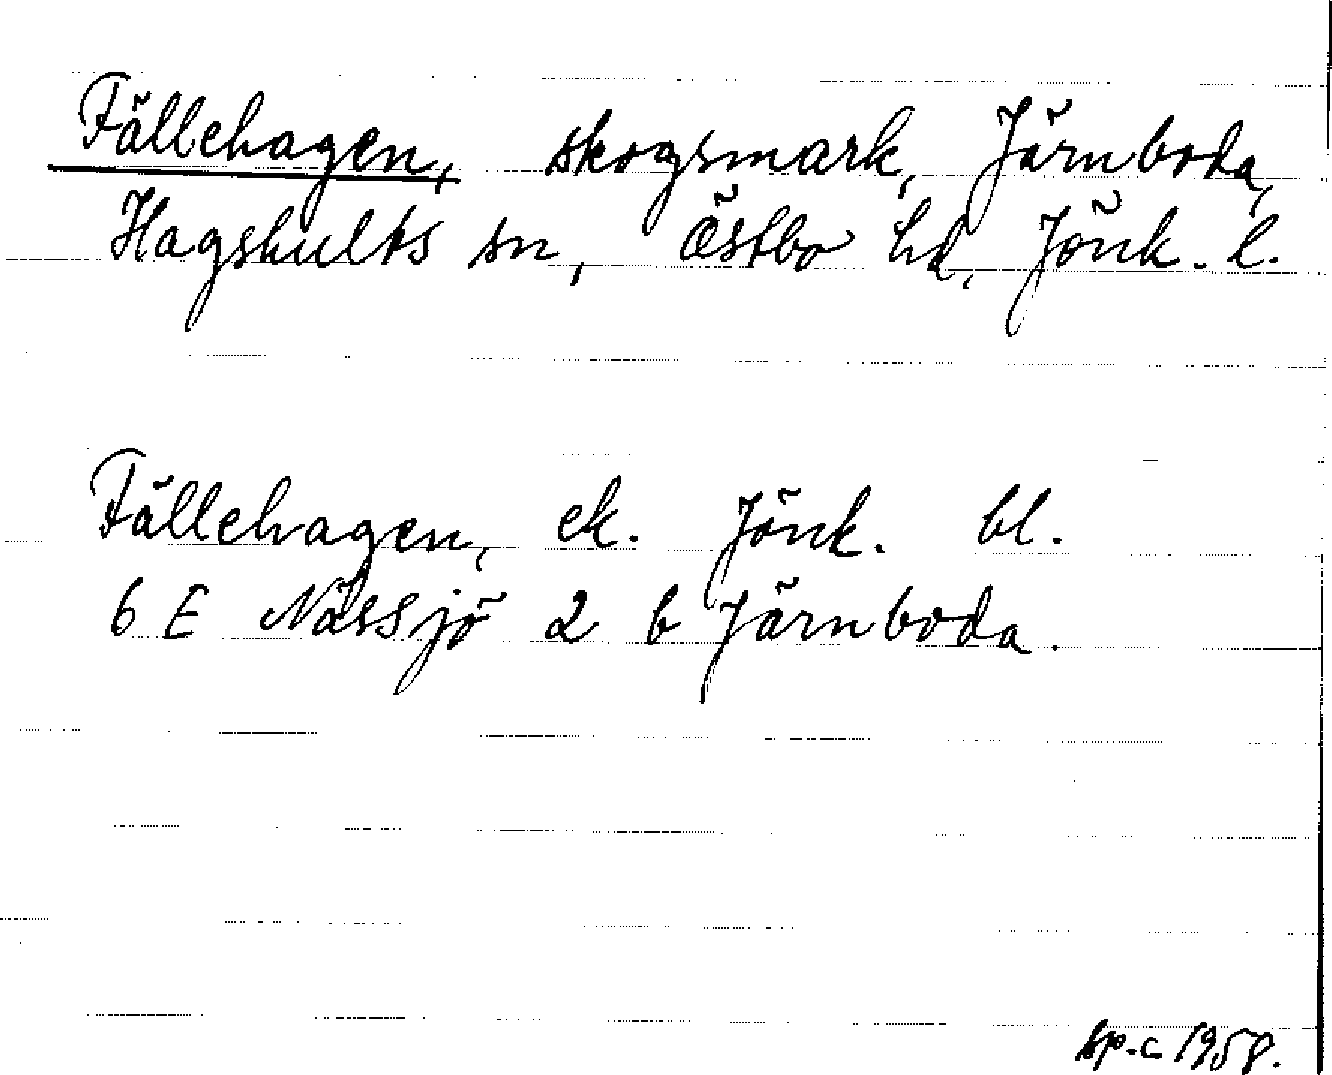 Fällehagen, skogsmark, Järnboda,
Hagshults sn, Östbo hd, Jönk. l.
Fällehagen, ek. Jönk. bl.
6 E Nässjö 2 b Järnboda.
sp.c 1958.